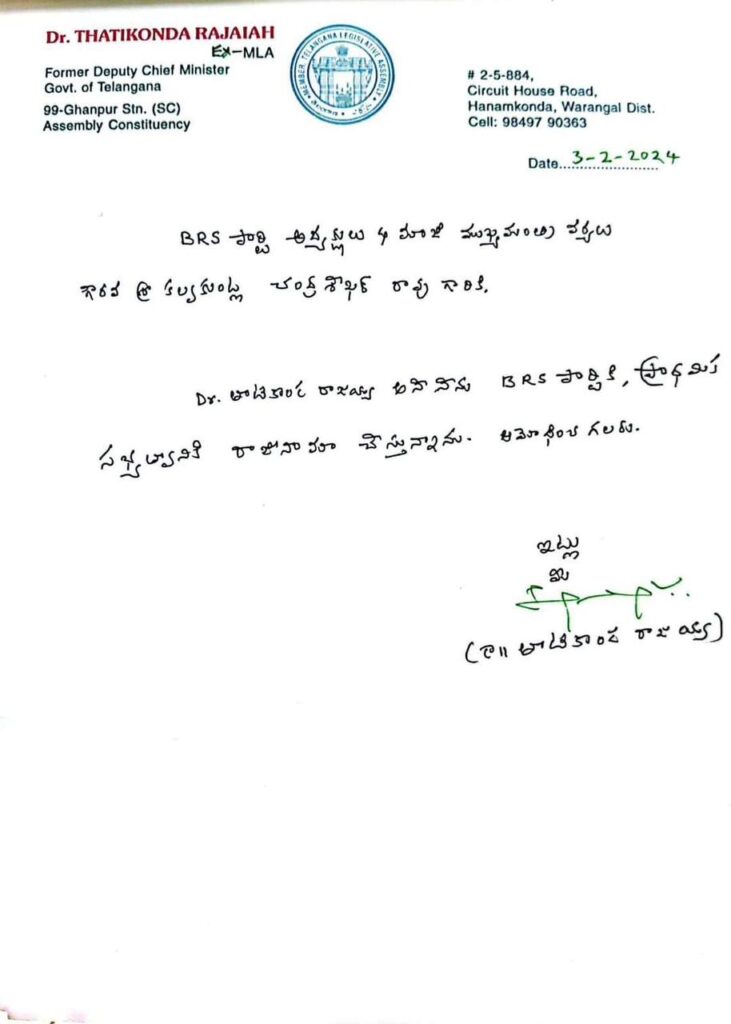 Dr. THATIKONDA RAJAIAH
Ex-MLA
Former Deputy Chief Minister
Govt. of Telangana
99-Ghanpur Stn. (SC)
Assembly Constituency
MEMBER TELANGANA LEGISLATIVE ASSEMBLY
# 2-5-884,
Circuit House Road,
Hanamkonda, Warangal Dist.
Cell: 98497 90363
Date 3-2-2024
BRS పార్టీ అధ్యక్షులు & మాజీ ముఖ్యమంత్రి వర్యులు
గౌరవ శ్రీ కల్వకుంట్ల చంద్రశేఖర్ రావు గారికి,
Dr. తాటికొండ రాజయ్య అను నేను BRS పార్టీకి, ప్రాథమిక
సభ్యత్వానికి రాజీనామా చేస్తున్నాను. ఆమోదించ గలరు.
ఇట్లు
మీ
(డా॥ తాటికొండ రాజయ్య)